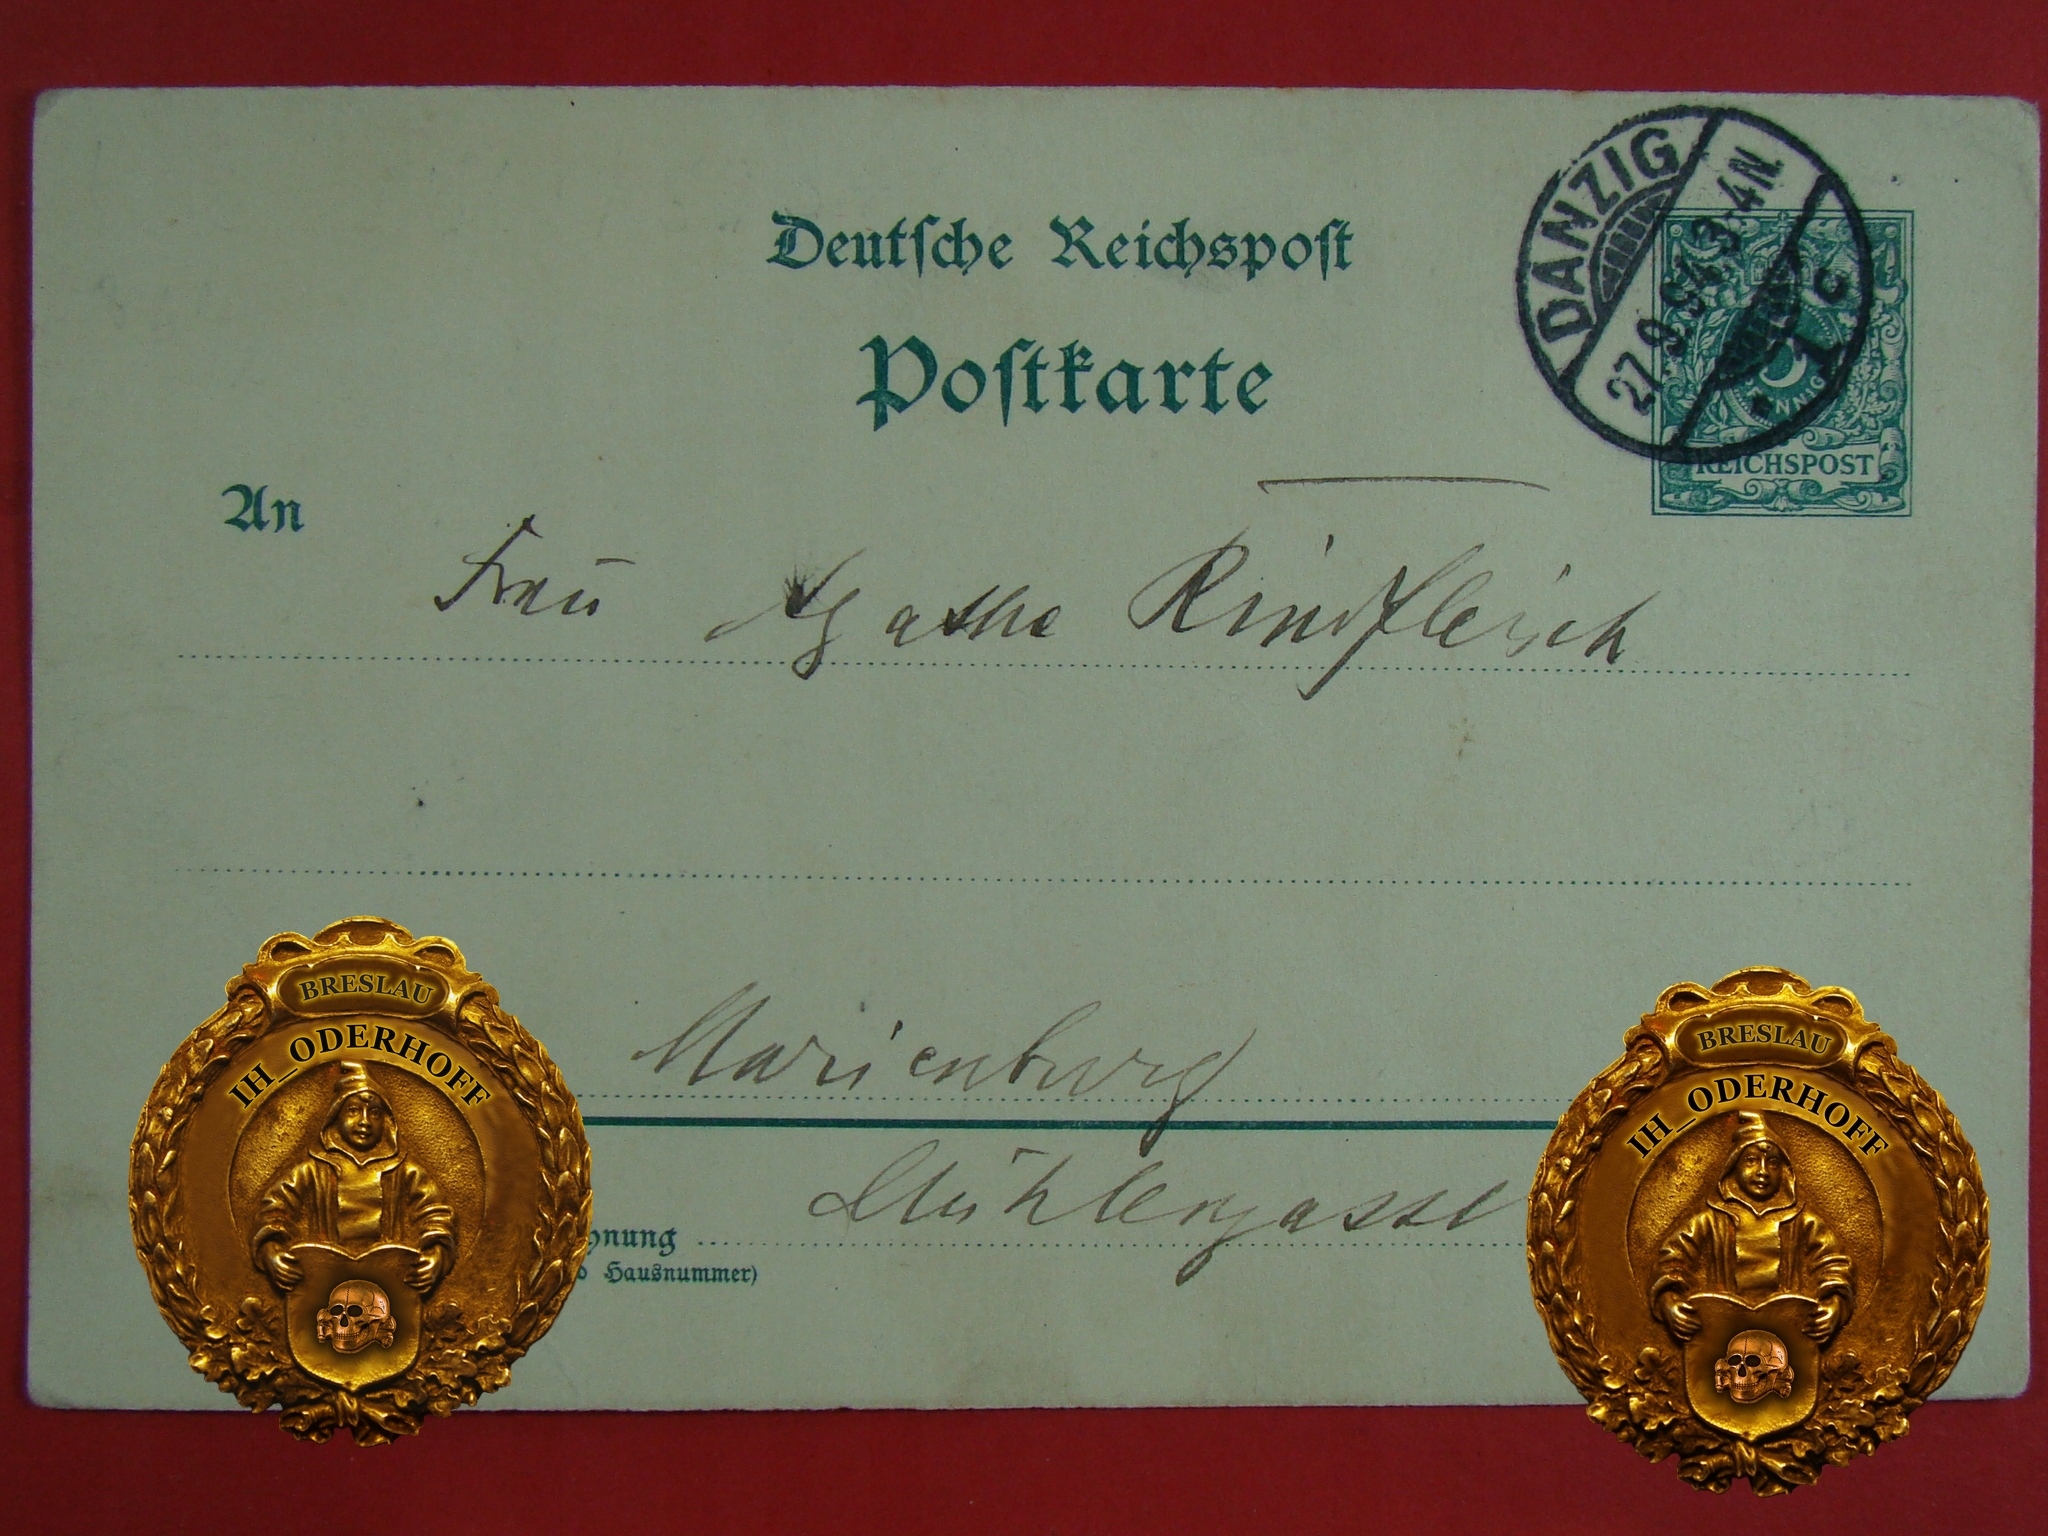 Deutsche Reichspost
Postkarte
DANZIG
27.9.94.3-4N.
1 c
NNIG
REICHSPOST
An
Frau Agathe Rindfleisch
Marienburg
Mühlengasse
hnung
Hausnummer)
BRESLAU
IH_ODERHOFF
BRESLAU
IH_ODERHOFF